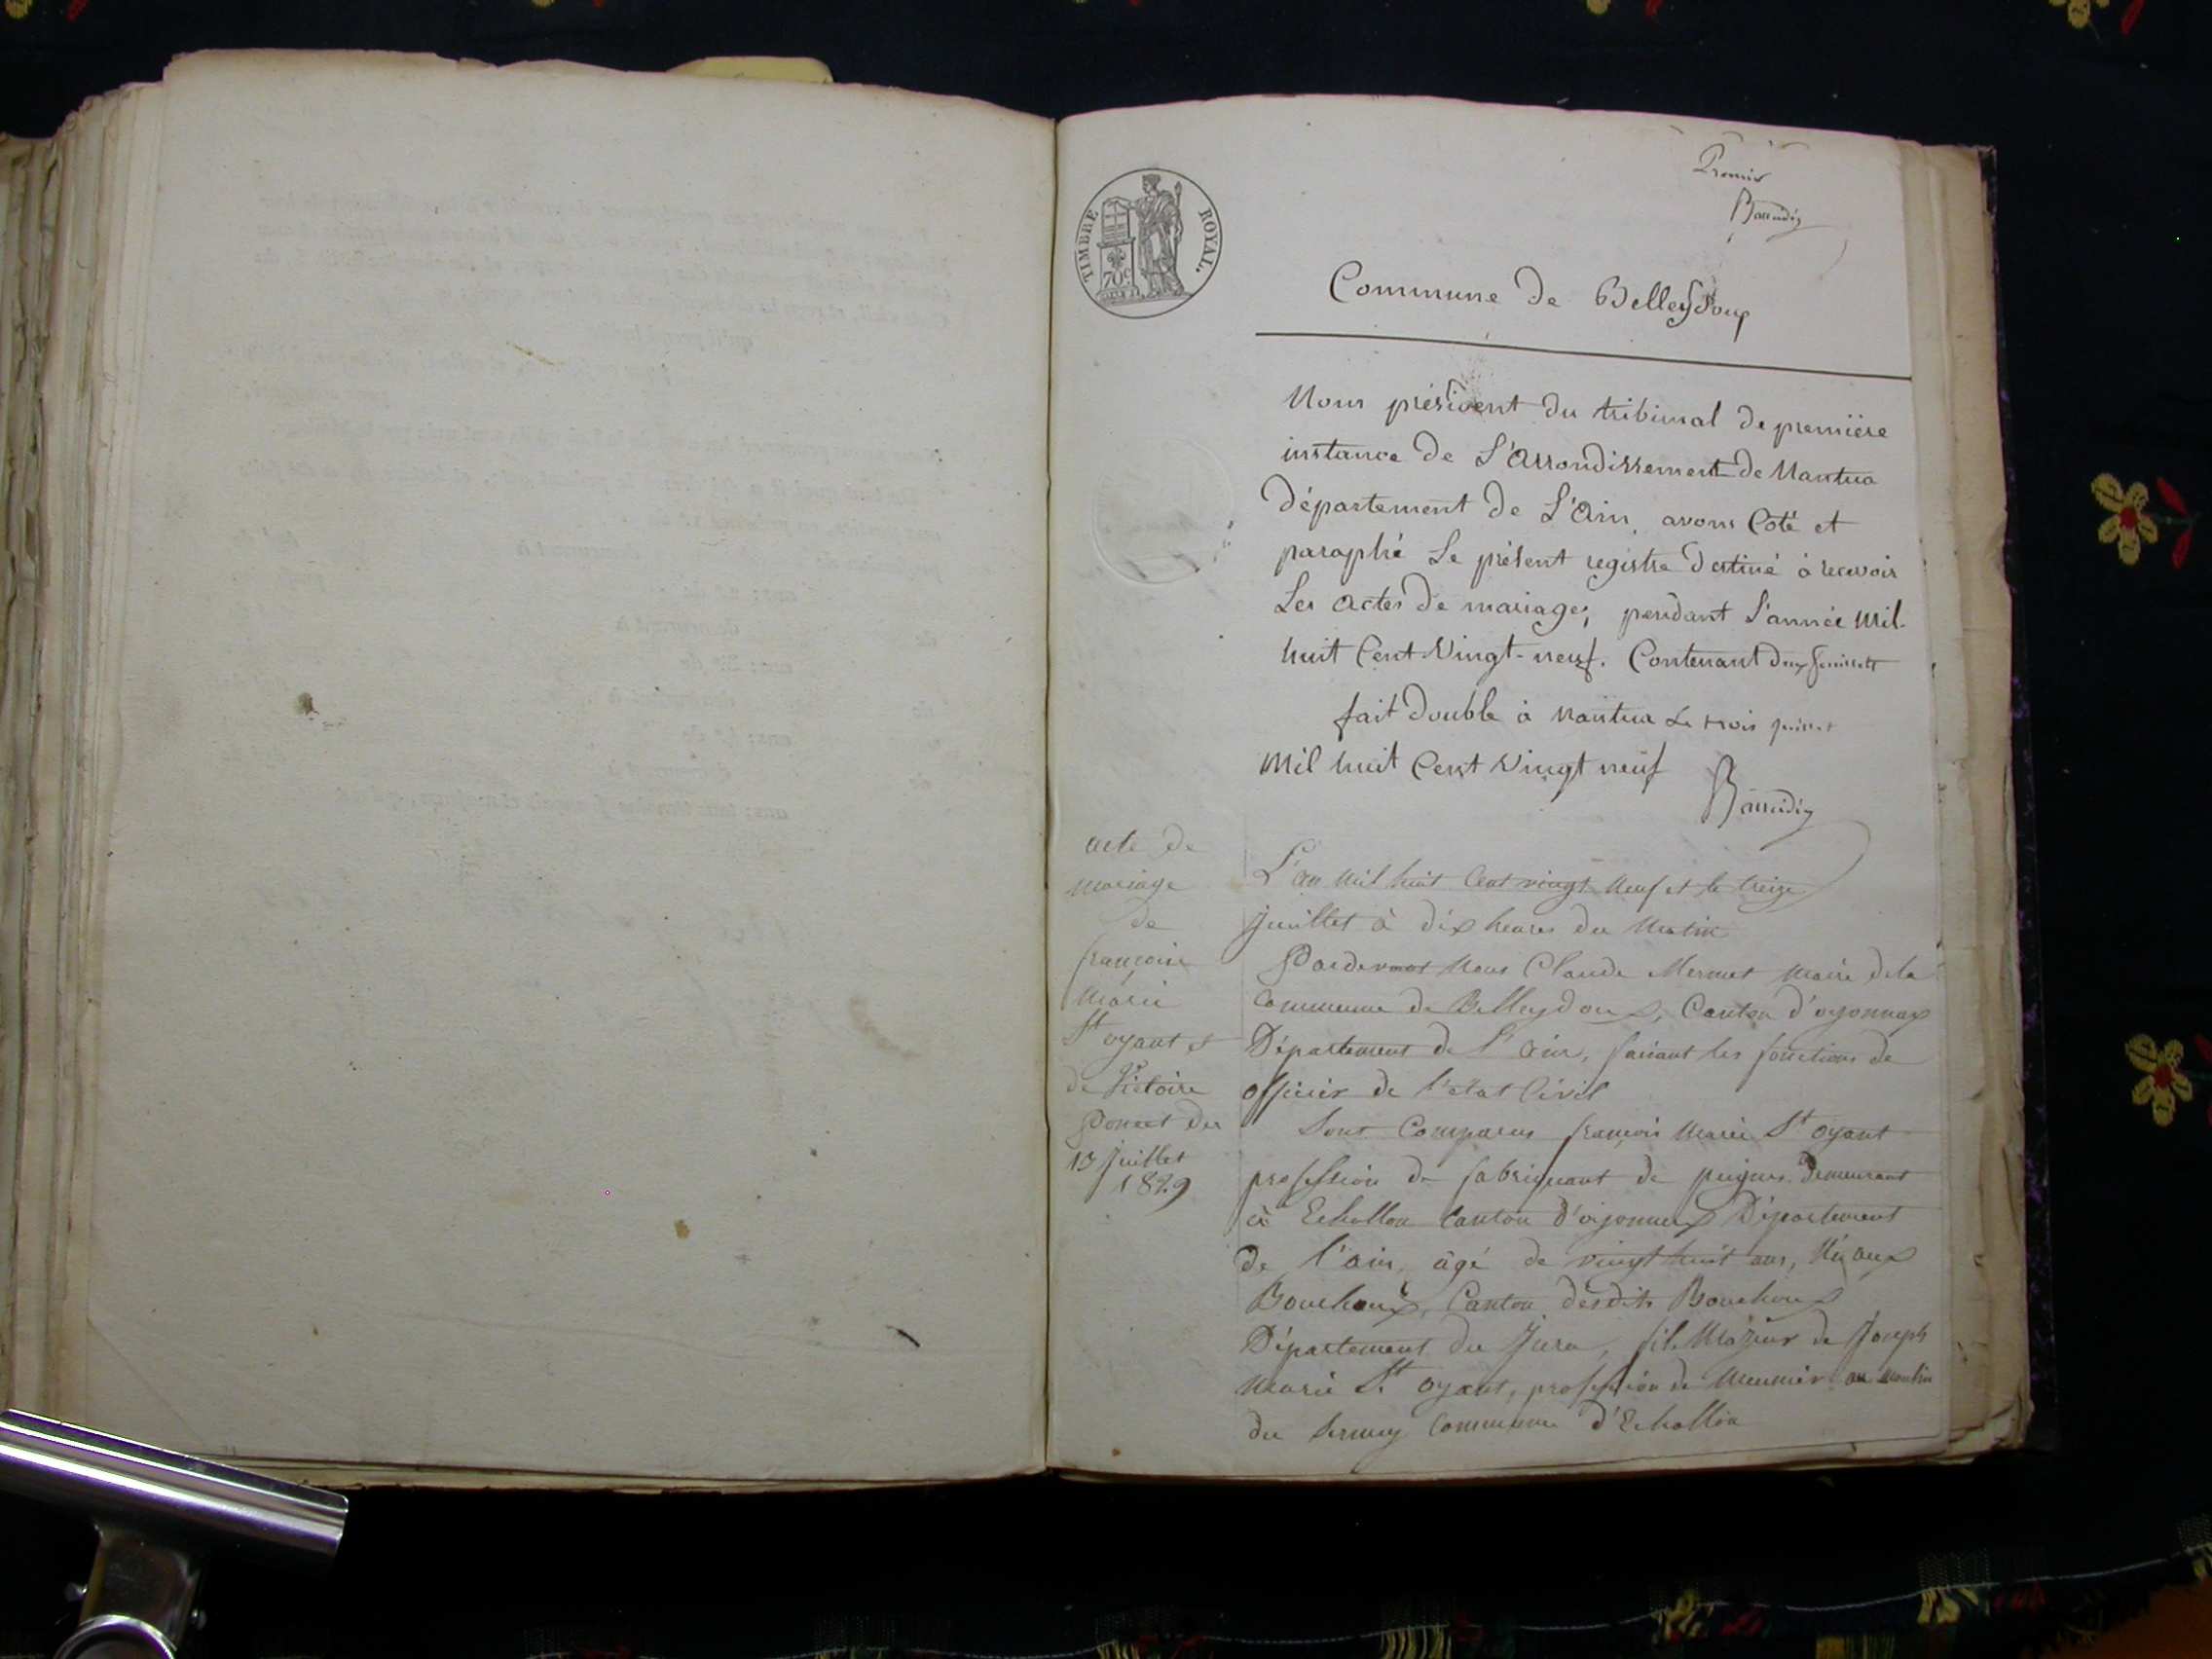 Premier
TIMBRE ROYAL.
70c
Commune de Belleydoux
Nous président du tribunal de première
instance de L'Arrondissement de Nantua
département de L'Ain, avons Coté et
paraphé Le présent registre destiné à recevoir
Les actes de mariages, pendant L'année mil-
huit Cent-Vingt-neuf. Contenant deux feuillets
fait double à nantua Le trois juillet
mil huit Cent Vingt neuf
acte de
mariage
de
françois
Marie
St oyant et
de Victoire
Poncet du
13 juillet
1829
L'an mil huit Cent vingt neuf et le treize
juillet à dix heures du Matin
Pardevant Nous Claude Mermet Maire dela
Commune de Belleydoux, Canton d'oyonnax
Département de l'ain, faisant les fonctions de
officier de l'état Civil
Sont Comparus françois Marie St oyant
profession de fabriquant de peignes demeurant
à Echallon Canton d'oyonnax Département
de l'ain, âgé de vingt huit ans, Né aux
Bouchoux, Canton desdits Bouchoux
Département du Jura, fils Majeur de Joseph
Marie St oyant, profession de Meunier au Moulin
du Commune d'Echallon